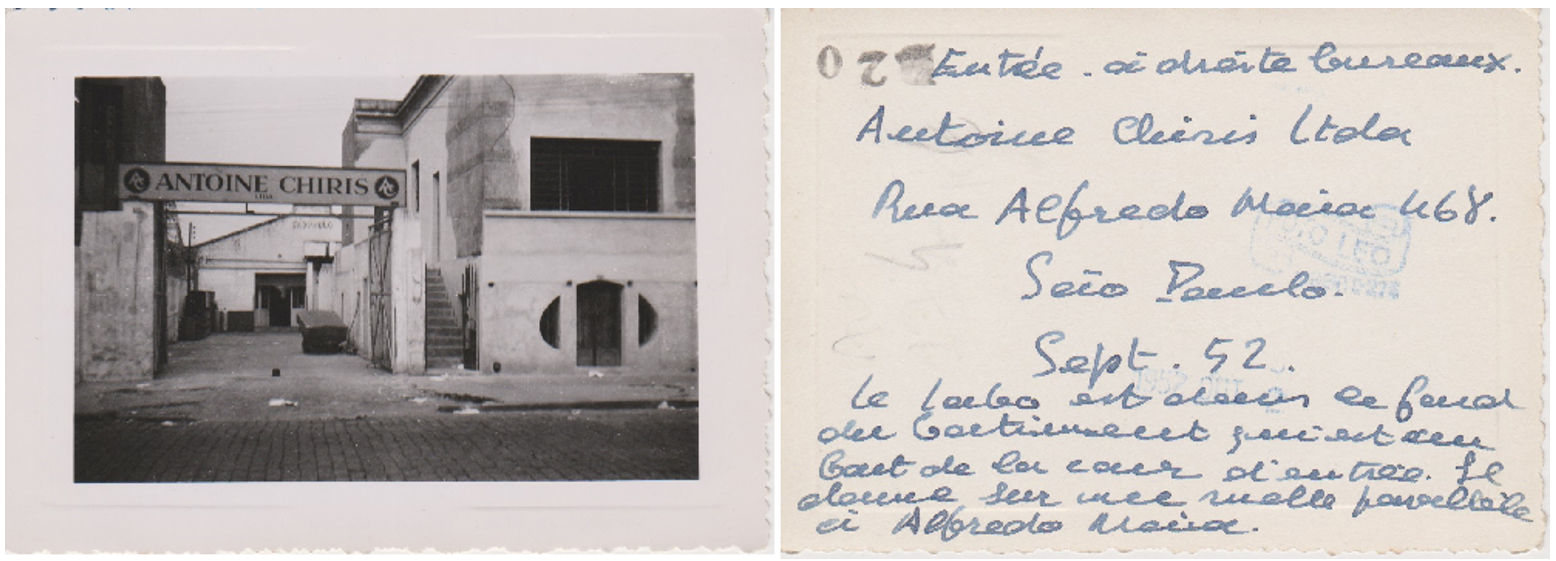 AC ANTOINE CHIRIS AC
LTDA
SÃO PAULO
020
Entrée. à droite bureaux.
Antoine Chiris Ltda
Rua Alfredo Maia 468.
São Paulo.
Sept. 52.
Le labo est dans le fond
du batiment qui est au
bout de la cour d'entrée. Il
donne sur une ruelle parallèle
à Alfredo Maia.